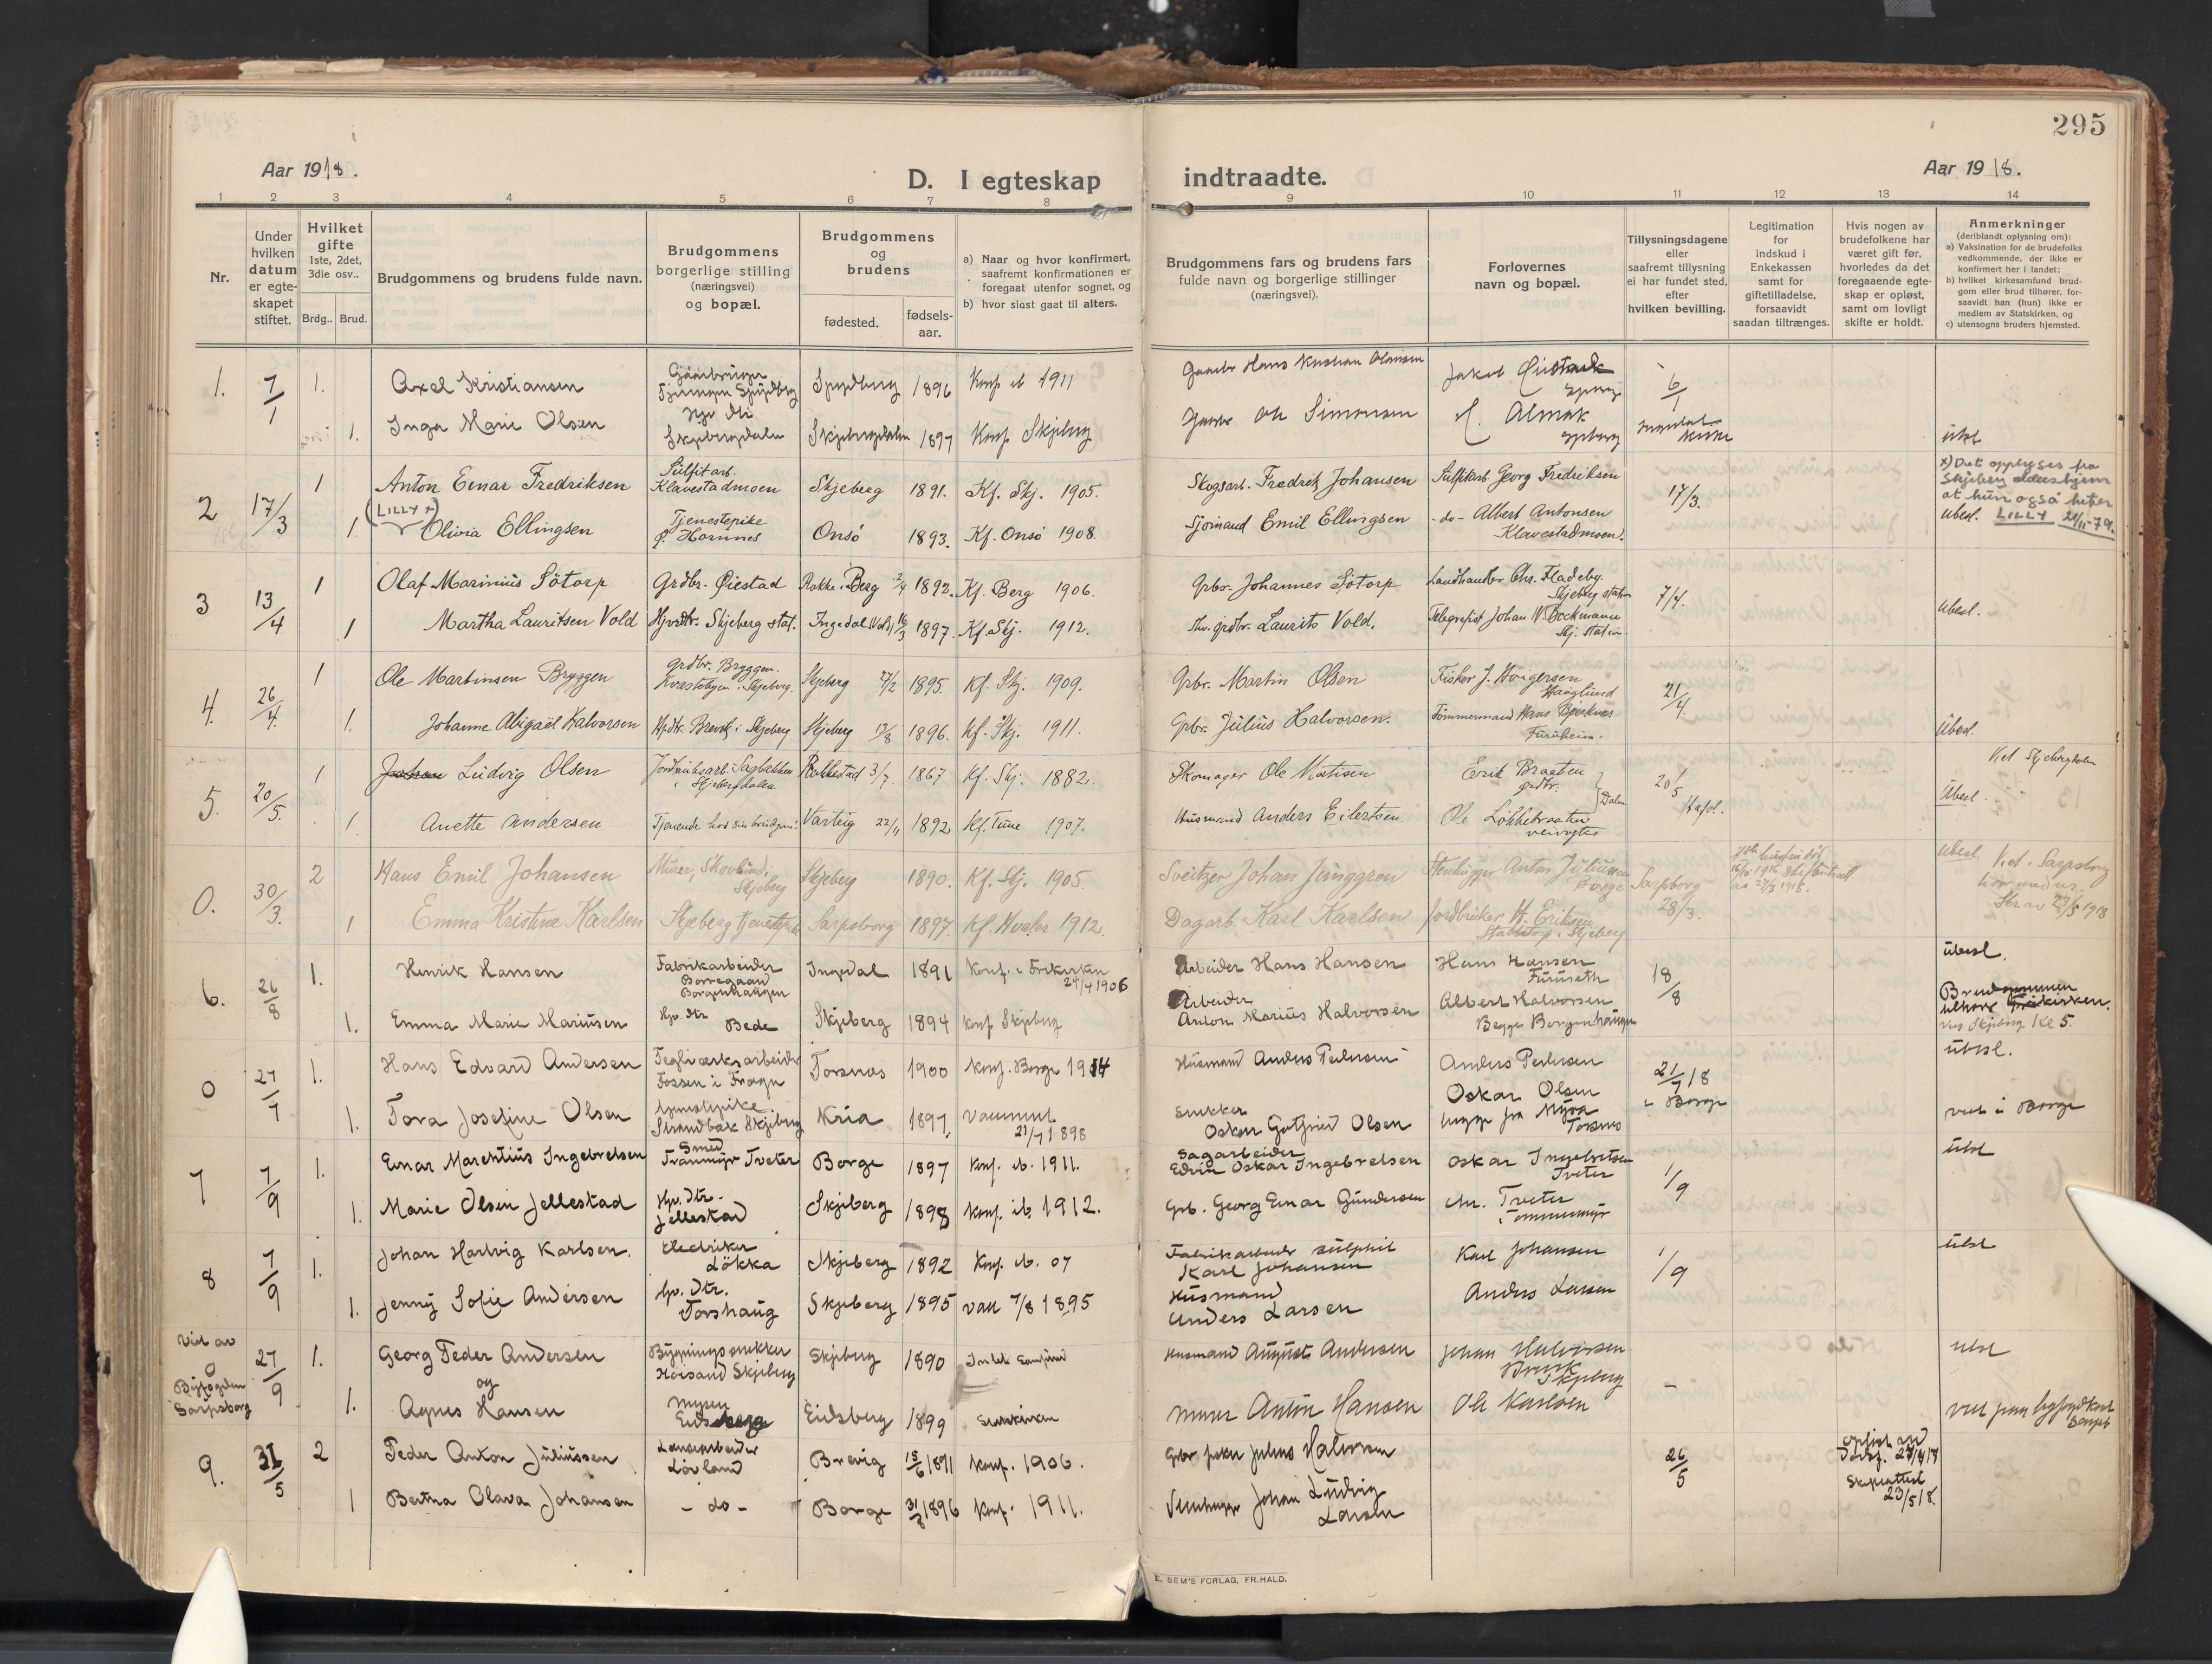 295
Aar 1918.
D. I egteskap indtraadte.
Aar 1918.
1 2 3 4 5 6 7 8 9 10 11 12 13 14
Nr.
Under hvilken datum er egteskapet stiftet.
Hvilket gifte 1ste, 2det, 3die osv..
Brdg.. Brud.
Brudgommens og brudens fulde navn.
Brudgommens borgerlige stilling (næringsvei) og bopæl.
Brudgommens og brudens
fødested.
fødselsaar.
a) Naar og hvor konfirmert, saafremt konfirmationen er foregaat utenfor sognet, og
b) hvor sidst gaat til alters.
Brudgommens fars og brudens fars fulde navn og borgerlige stillinger (næringsvei).
Forlovernes navn og bopæl.
Tillysningsdagene eller saafremt tillysning ei har fundet sted, efter hvilken bevilling.
Legitimation for indskud i Enkekassen samt for giftetilladelse, forsaavidt saadan tiltrænges.
Hvis nogen av brudefolkene har været gift før, hvorledes da det foregaaende egteskap er opløst, samt om lovligt skifte er holdt.
Anmerkninger
(deriblandt oplysning om):
a) Vaksination for de brudefolks vedkommende, der ikke er konfirmert her i landet;
b) hvilket kirkesamfund brudgom eller brud tilhører, forsaavidt han (hun) ikke er medlem av Statskirken, og
c) utensogns bruders hjemsted.
1. 7/1 1. Axel Kristiansen Spydberg 1896 Konf ib 1911 Gaardbr Hans Kristian Olavesen 6/1
1. Inga Marie Olsen Skjebergdalen Skjebergdalen 1897 Konf Skjeberg Ole Simonsen ubesl
2 17/3 1 Anton Einar Fredriksen Sulfitarb. Klavestadmoen Skjeberg 1891. Kf. Skj. 1905. Skogsarb. Fredrik Johansen Sulfitarb. Georg Fredriksen 17/3.
x) Det opplyses fra Skjeberg aldershjem at hun også heter LILLY 21/11-79.
(LILLY x)
1 Olivia Ellingsen Tjenestepike Ø. Hornnes Onsö 1893. Kf. Onsö 1908. Sjömand Emil Ellingsen - do - Albert Antonsen Klavestadmoen. Ubesl.
3 13/4 1 Olaf Marinius Sötorp Grdbr. Öiestad Rokke i Berg 2/4 1892. Kf. Berg 1906. Gbr. Johannes Sötorp Landhandler Chr. Fladeby. Skjeberg station 7/4.
1 Martha Lauritsen Vold Hjvrdtr. Skjeberg stat. Ingedal (Vold) 16/3 1897. Kf. Skj. 1912. Thv. grdbr. Laurits Vold. Telegrafist Johan W. Bockmann Skj. station. Ubesl.
4. 26/4. 1 Ole Martinsen Bryggen Grdbr. Bryggen. Kvastebyen i Skjeberg. Skjeberg 27/2 1895. Kf. Skj. 1909. Gbr. Martin Olsen Fisker J. Horgersen Hauglund 21/4.
1. Johanne Abigael Halvorsen Hjdtr. Brevik i Skjeberg Skjeberg 13/8 1896. Kf. Skj. 1911. Gbr. Julius Halvorsen. Tömmermand Hans Bjerknes Furuheim. Ubesl.
5. 20/5. 1 Johan Ludvig Olsen Jordbruksarb. Sagbakken i Skjebergdalen Rakkestad 3/7. 1867 Kf. Skj. 1882. Skomager Ole Matisen Erik Braaten grdbr. 20/5 Hafsl. Viet Skjebergdalen
1. Anette Andersen Tjenende hos sin brudgom Varteig 22/11 1892 Kf. Tune 1907. Husmand Anders Eilertsen. Ole Lökkebraaten veivogter Dalen Ubesl.
0. 30/3. 2 Hans Emil Johansen Murer, Skovlund i Skjeberg Skjeberg 1890. Kf. Skj. 1905. Sveitzer Johan Ljunggren Stenhugger Anton Juliussen Borge Sarpsborg 28/3. Ubesl. Viet i Sarpsborg
1 Emma Kristine Karlsen Skjeberg tjenestepike Sarpsborg 1897. Kf. Hvaler 1912. Dagarb. Karl Karlsen Jordbruker H. Eriksen Stabbetorp i Skjeberg Skr av 23/5 1918
6. 26/8 1. Henrik Hansen Fabrikarbeider Borregaard Borgenhaugen Ingedal 1891 Konf. i Frikirken 24/4 1906 Arbeider Hans Hansen Hans Hansen Furuseth 18/8 ubesl.
1. Emma Marie Mariusen Hjv. dtr Bede Skjeberg 1894 Konf Skjeberg Arbeider Anton Marius Halvorsen Albert Halvorsen Begge Borgenhaugen Brudgommen tilhører Frikirken. Viet Skjeberg Kl 5.
0 27/7 1. Hans Edvard Andersen Teglverksarbeider Fossen i Frogn Torsnes 1900 Konf. Borge 1914 Husmand Anders Pedersen Anders Pedersen 21/7 18 i Borge ubesl.
1. Tora Josefine Olsen tjenestepike Strandbak Skjeberg Kria 1897. Vaccinert 21/7 1898 Snekker Oskar Gotfried Olsen Oskar Olsen begge fra Myra Torsnes viet i Borge
7 7/9 1. Einar Marentius Ingebretsen Smed Tveter Borge 1897 Konf. ib. 1911. Sagarbeider Edvin Oskar Ingebretsen Oskar Ingebretsen Tveter 1/9 ubesl
1. Marie Olsen Jellestad Hjv. dtr. Jellestad Skjeberg 1898 Konf. ib. 1912. Grb. Georg Einar Gundersen Chr. Tveter
8 7/9 1. Johan Hartvig Karlsen. Electriker Lökka Skjeberg 1892 Konf. ib. 07 Fabrikarbeider sulphit Karl Johansen Karl Johansen 1/9 ubesl
1. Jenny Sofie Andersen hjv. dtr. Torshaug Skjeberg 1895 vacc 7/8 1895 Husmand Anders Larsen Anders Larsen
Viet av 0 Byfogden Sarpsborg 27/9 1. Georg Peder Andersen Bygningssnekker Höisand Skjeberg Skjeberg 1890 Husmand August Andersen Johan Halvorsen Brevik Skjeberg - ubesl
og
1. Agnes Hansen Mysen Eidsberg Eidsberg 1899 Statskirken Murer Anton Hansen Ole Karlsen
9. 31/5 2 Peder Anton Juliussen Landarbeider Lövland Brevig 15/6 1891 Konf. 1906. 26/5 Skifteattest 23/5 18.
1 Bertha Olava Johansen - do - Borge 31/8 1896 Konf. 1911. Stenhugger Johan Ludvig Larsen
E. SEM'S FORLAG, FR.HALD.